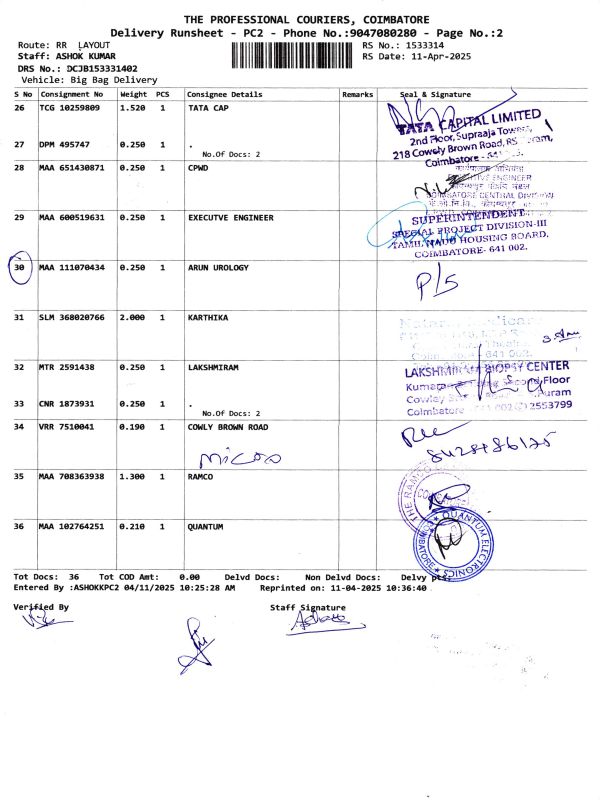 THE PROFESSIONAL COURIERS, COIMBATORE
Delivery Runsheet - PC2 - Phone No.:9047080280 - Page No.:2
Route: RR LAYOUT
RS No.: 1533314
Staff: ASHOK KUMAR
RS Date: 11-Apr-2025
DRS No.: DCJB153331402
Vehicle: Big Bag Delivery
S No Consignment No Weight PCS Consignee Details Remarks Seal & Signature
26 TCG 10259809 1.520 1 TATA CAP
TATA CAPITAL LIMITED
2nd Floor, Supraaja Towers,
218 Cowely Brown Road, RS
Coimbatore -
27 DPM 495747 0.250 1 .
No.Of Docs: 2
28 MAA 651430871 0.250 1 CPWD
ENGINEER
COIMBATORE CENTRAL DIVISION
29 MAA 600519631 0.250 1 EXECUTIVE ENGINEER
SUPERINTENDENT
SPECIAL PROJECT DIVISION-III
TAMIL NADU HOUSING BOARD,
COIMBATORE- 641 002.
30 MAA 111070434 0.250 1 ARUN UROLOGY
P/S
31 SLM 368020766 2.000 1 KARTHIKA
641 002.
32 MTR 2591438 0.250 1 LAKSHMIRAM
LAKSHMIRAM BIOPSY CENTER
Second Floor
Cowley
Coimbatore - 641 002 2553799
33 CNR 1873931 0.250 1 .
No.Of Docs: 2
34 VRR 7510041 0.190 1 COWLY BROWN ROAD
35 MAA 708363938 1.300 1 RAMCO
THE RAMCO
36 MAA 102764251 0.210 1 QUANTUM
QUANTUM ELECTRONICS
COIMBATORE
Tot Docs: 36 Tot COD Amt: 0.00 Delvd Docs: Non Delvd Docs: Delvy pts:
Entered By :ASHOKKPC2 04/11/2025 10:25:28 AM Reprinted on: 11-04-2025 10:36:40
Verified By
Staff Signature